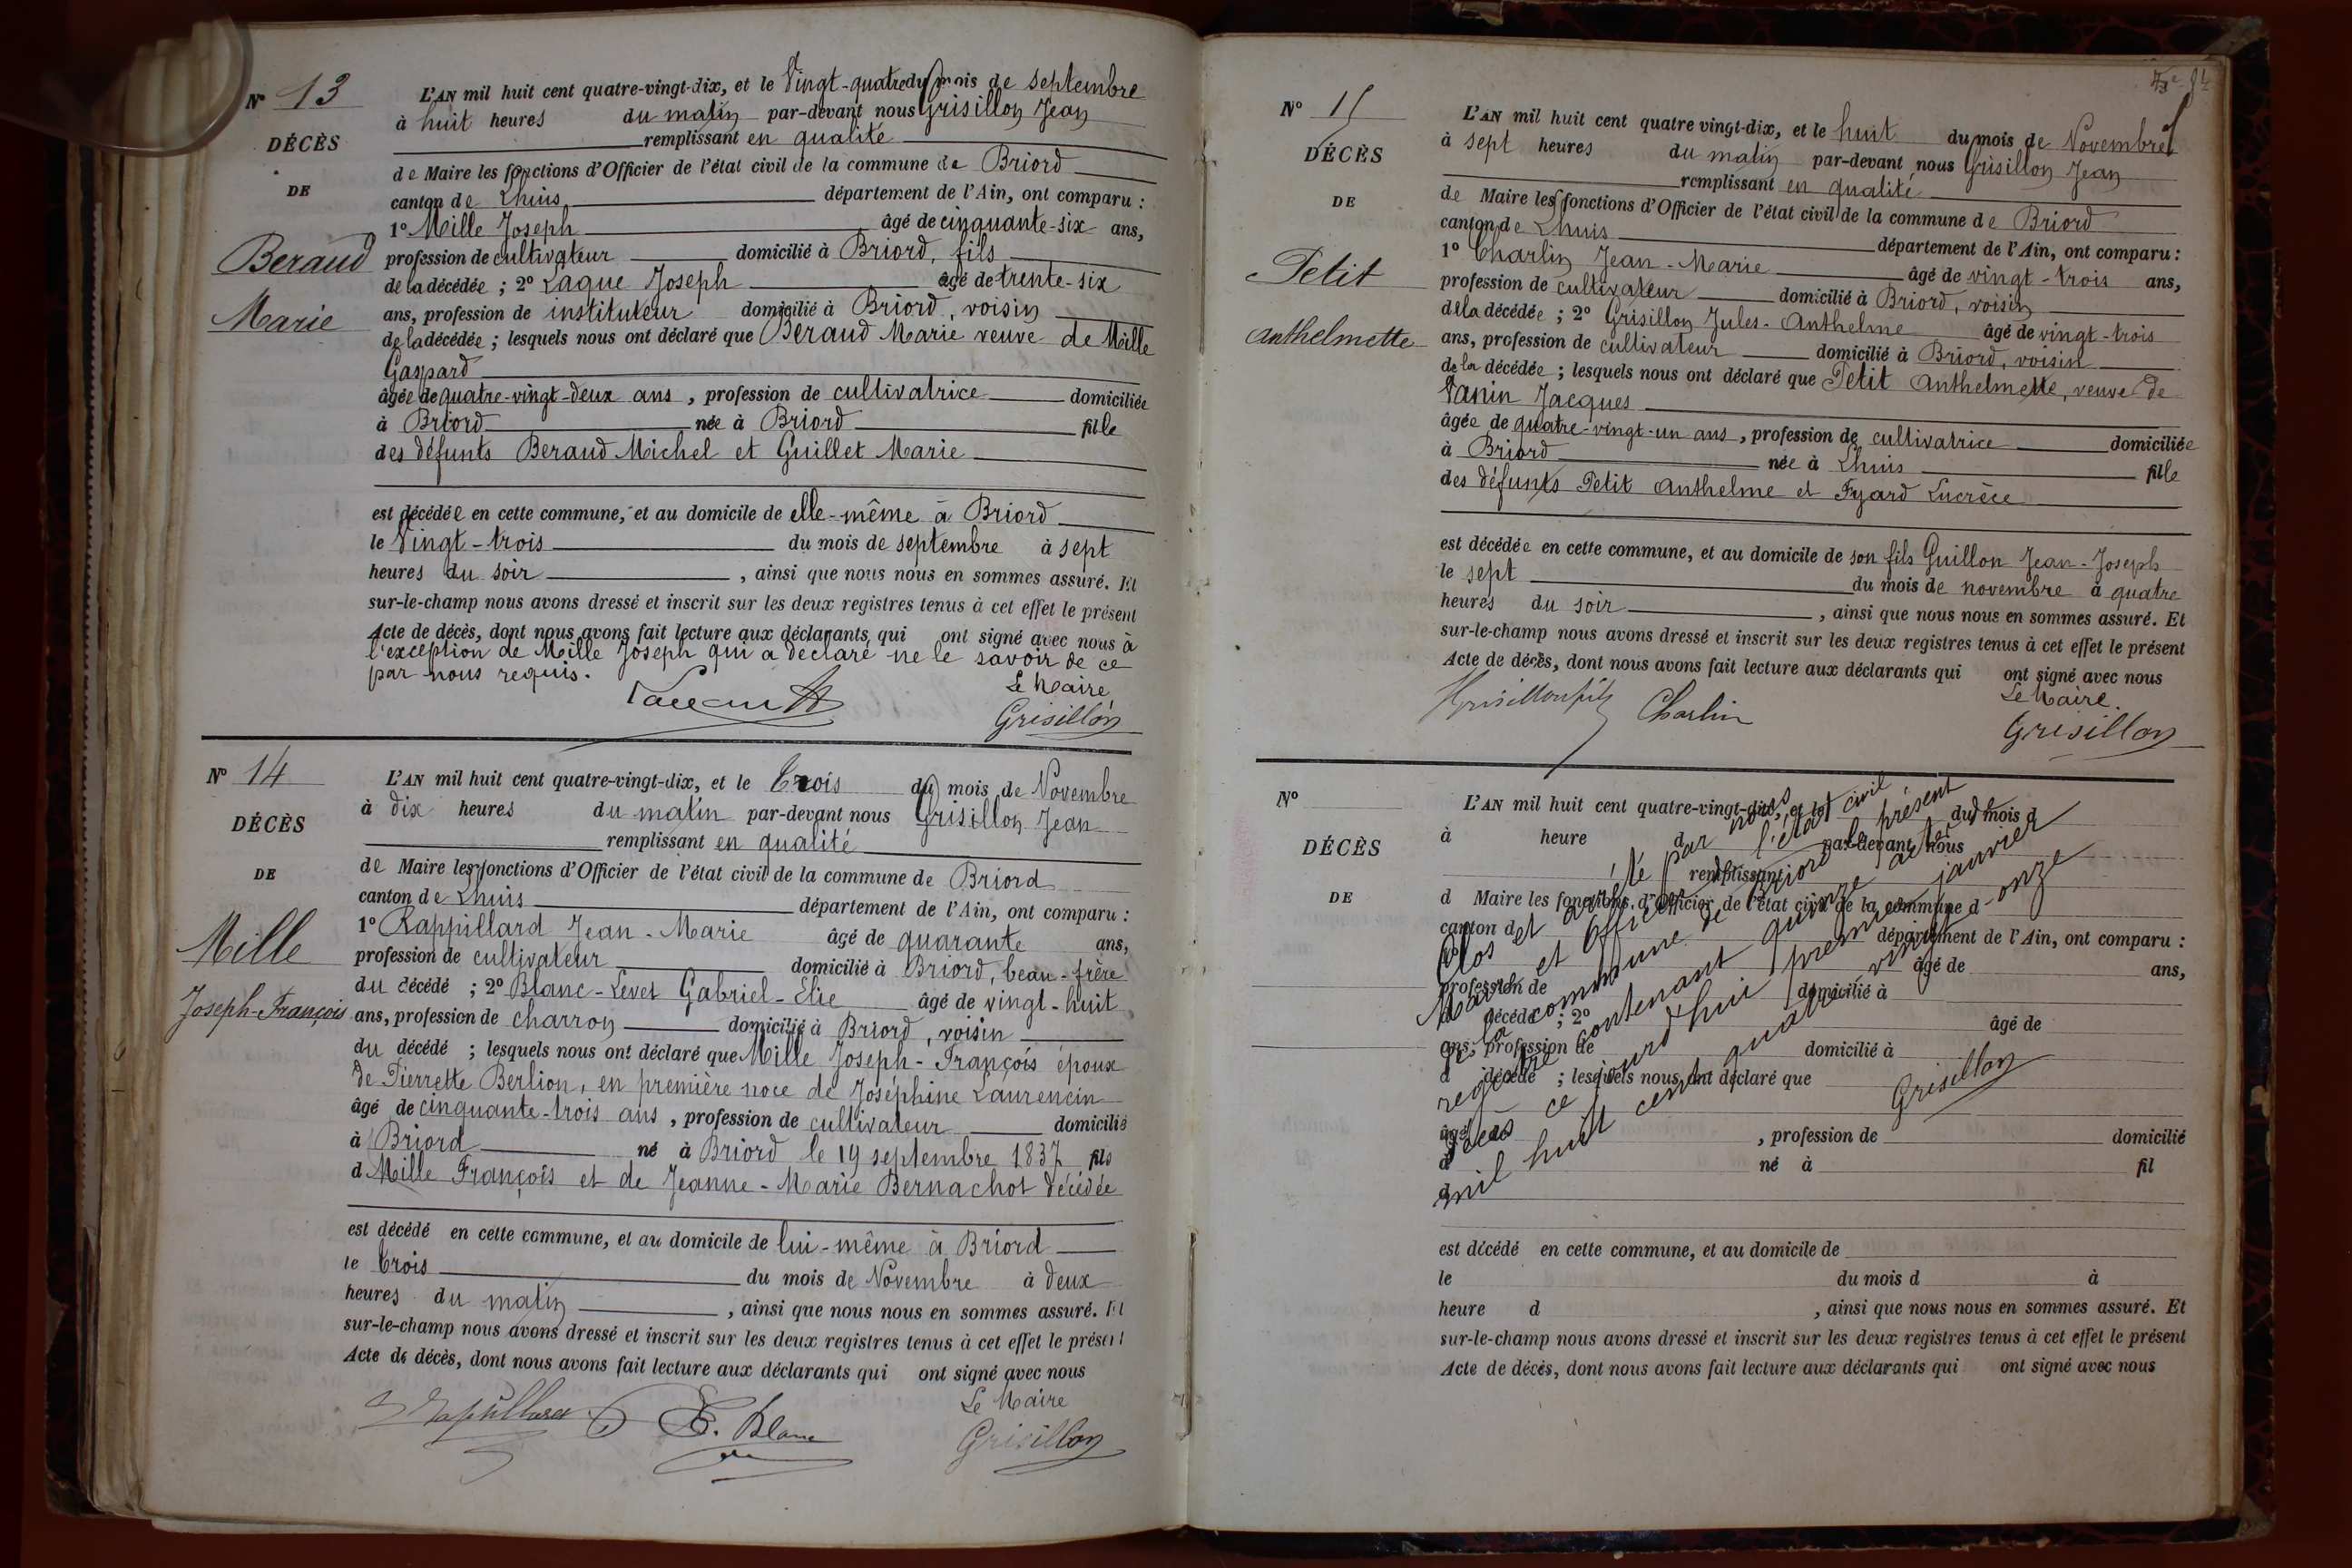 N° 13
DÉCÈS
DE
Beraud
Marie
L'AN mil huit cent quatre-vingt-dix, et le Vingt-quatre du mois de septembre
à huit heures du matin par-devant nous Grisillon Jean
remplissant en qualité
de Maire les fonctions d'Officier de l'état civil de la commune de Briord
canton de Lhuis département de l'Ain, ont comparu :
1° Mille Joseph âgé de cinquante-six ans,
profession de cultivateur domicilié à Briord, fils
de la décédée ; 2° Laque Joseph âgé de trente-six
ans, profession de instituteur domicilié à Briord, voisin
de la décédée ; lesquels nous ont déclaré que Beraud Marie veuve de Mille
Gaspard
âgée de quatre-vingt-deux ans, profession de cultivatrice domiciliée
à Briord née à Briord fille
des défunts Beraud Michel et Guillet Marie
est décédée en cette commune, et au domicile de elle-même à Briord
le Vingt-trois du mois de septembre à sept
heures du soir, ainsi que nous nous en sommes assuré. Et
sur-le-champ nous avons dressé et inscrit sur les deux registres tenus à cet effet le présent
Acte de décès, dont nous avons fait lecture aux déclarants qui ont signé avec nous à
l'exception de Mille Joseph qui a déclaré ne le savoir de ce
par nous requis.
Le Maire
Grisillon
N° 14
DÉCÈS
DE
Mille
Joseph-François
L'AN mil huit cent quatre-vingt-dix, et le Trois du mois de Novembre
à dix heures du matin par-devant nous Grisillon Jean
remplissant en qualité
de Maire les fonctions d'Officier de l'état civil de la commune de Briord
canton de Lhuis département de l'Ain, ont comparu :
1° Rappillard Jean-Marie âgé de quarante ans,
profession de cultivateur domicilié à Briord, beau-frère
du décédé ; 2° Blanc-Levet Gabriel-Elie âgé de vingt-huit
ans, profession de charron domicilié à Briord, voisin
du décédé ; lesquels nous ont déclaré que Mille Joseph-François époux
de Pierrette Berlion, en première noce de Joséphine Laurencin
âgé de cinquante-trois ans, profession de cultivateur domicilié
à Briord né à Briord le 19 septembre 1837 fils
d Mille François et de Jeanne-Marie Bernachot décédée
est décédé en cette commune, et au domicile de lui-même à Briord
le trois du mois de Novembre à deux
heures du matin, ainsi que nous nous en sommes assuré. Et
sur-le-champ nous avons dressé et inscrit sur les deux registres tenus à cet effet le présent
Acte de décès, dont nous avons fait lecture aux déclarants qui ont signé avec nous
Le Maire
Rapillard E. Blanc Grisillon
N° 15
DÉCÈS
DE
Petit
Anthelmette
L'AN mil huit cent quatre vingt-dix, et le huit du mois de Novembre
à sept heures du matin par-devant nous Grisillon Jean
remplissant en qualité
de Maire les fonctions d'Officier de l'état civil de la commune de Briord
canton de Lhuis département de l'Ain, ont comparu :
1° Charlin Jean-Marie âgé de vingt-trois ans,
profession de cultivateur domicilié à Briord, voisin
de la décédée ; 2° Grisillon Jules-Anthelme âgé de vingt-trois
ans, profession de cultivateur domicilié à Briord, voisin
de la décédée ; lesquels nous ont déclaré que Petit Anthelmette, veuve de
Vanin Jacques
âgée de quatre-vingt-un ans, profession de cultivatrice domiciliée
à Briord née à Lhuis fille
des défunts Petit Anthelme et Fyard Lucrèce
est décédée en cette commune, et au domicile de son fils Guillon Jean-Joseph
le sept du mois de novembre à quatre
heures du soir, ainsi que nous nous en sommes assuré. Et
sur-le-champ nous avons dressé et inscrit sur les deux registres tenus à cet effet le présent
Acte de décès, dont nous avons fait lecture aux déclarants qui ont signé avec nous
Le Maire.
Grisillon fils Charlin Grisillon
N°
DÉCÈS
DE
L'AN mil huit cent quatre-vingt-dix, et le du mois d
à heure d par-devant nous
remplissant
d Maire les fonctions d'Officier de l'état civil de la commune d
canton d département de l'Ain, ont comparu :
1° âgé de ans,
profession de domicilié à
d décédé ; 2° âgé de
ans, profession de domicilié à
d décédé ; lesquels nous ont déclaré que
âgé , profession de domicilié
à né à fil
d
est décédé en cette commune, et au domicile de
le du mois d à
heure d , ainsi que nous nous en sommes assuré. Et
sur-le-champ nous avons dressé et inscrit sur les deux registres tenus à cet effet le présent
Acte de décès, dont nous avons fait lecture aux déclarants qui ont signé avec nous
Clos et arrêté par nous
Maire et Officier de l'état civil
de la commune de Briord le présent
registre contenant quinze actes de
décès ce jourd'hui premier janvier
mil huit cent quatre-vingt-onze
Grisillon